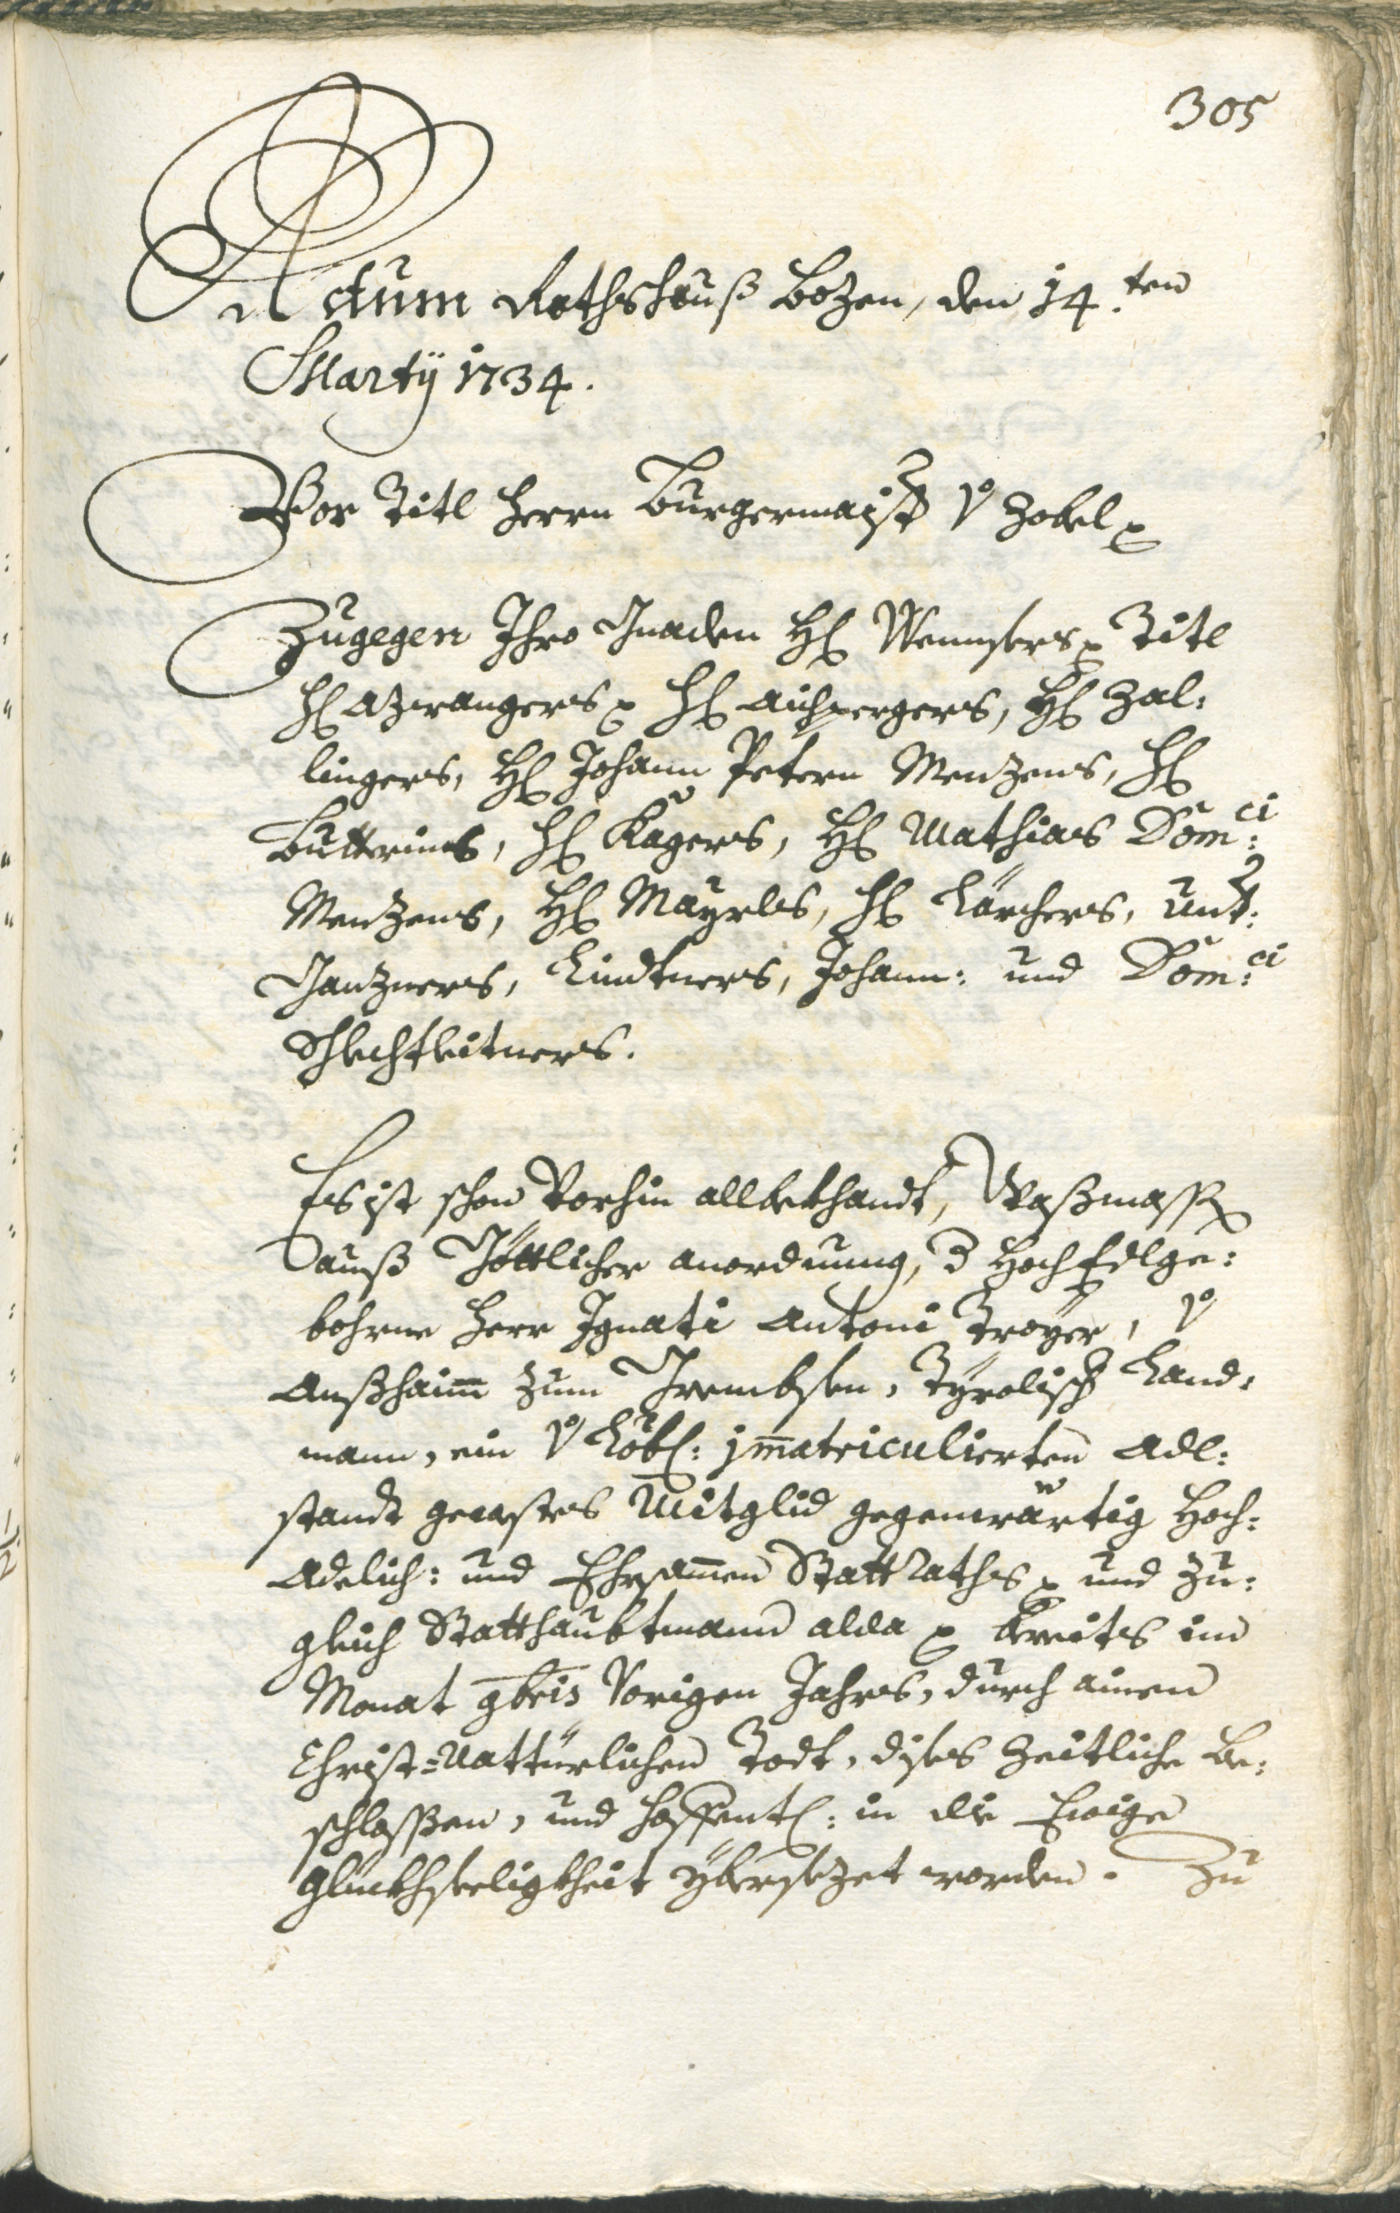 305
Actum Rathshauß Bozen, den 14.ten
Martÿ 1734.
Vor Titl Herrn Burgermaistr v. Zobel p
Zugegen Ihro Gnaden H: Wensers p Titl
H: Azwangers p H: Aichpergers, H: Zal:
lingers, H: Johann Petern Menzens, H:
Butterins, H: Kagers, H: Mathias Dom:ci
Menzens, H: Mayrls, H: Kärchers, Ant:
Ganzners, Lindtners, Johann: und Dom:ci
Schlechtleitners.
Es ist schon Vorhin allbekhandt, Waßmassen
auß Göttlicher anordnung, d Hoch Edlge:
bohrne Herr Ignati Antoni Troyer, v.
Außhaim zum Grembsen, Tyrolisch Land:
mann, ein v. Löbl: jm̄atriculierten Adl:
standt gewestes Mitglid gegenwärtig Hoch:
Adelich: und Ehrsam̄en Statt Raths p und zu:
gleich Statthaubtmann alda p bereits im
Monat 9bris Vorigen Jahrs, durch ainen
Christ=Nattürlichen Todt, dises Zeitliche be:
schlossen, und hoffentl: in die Ewige
Glückhseeligkheit ybersezet worden. Zu